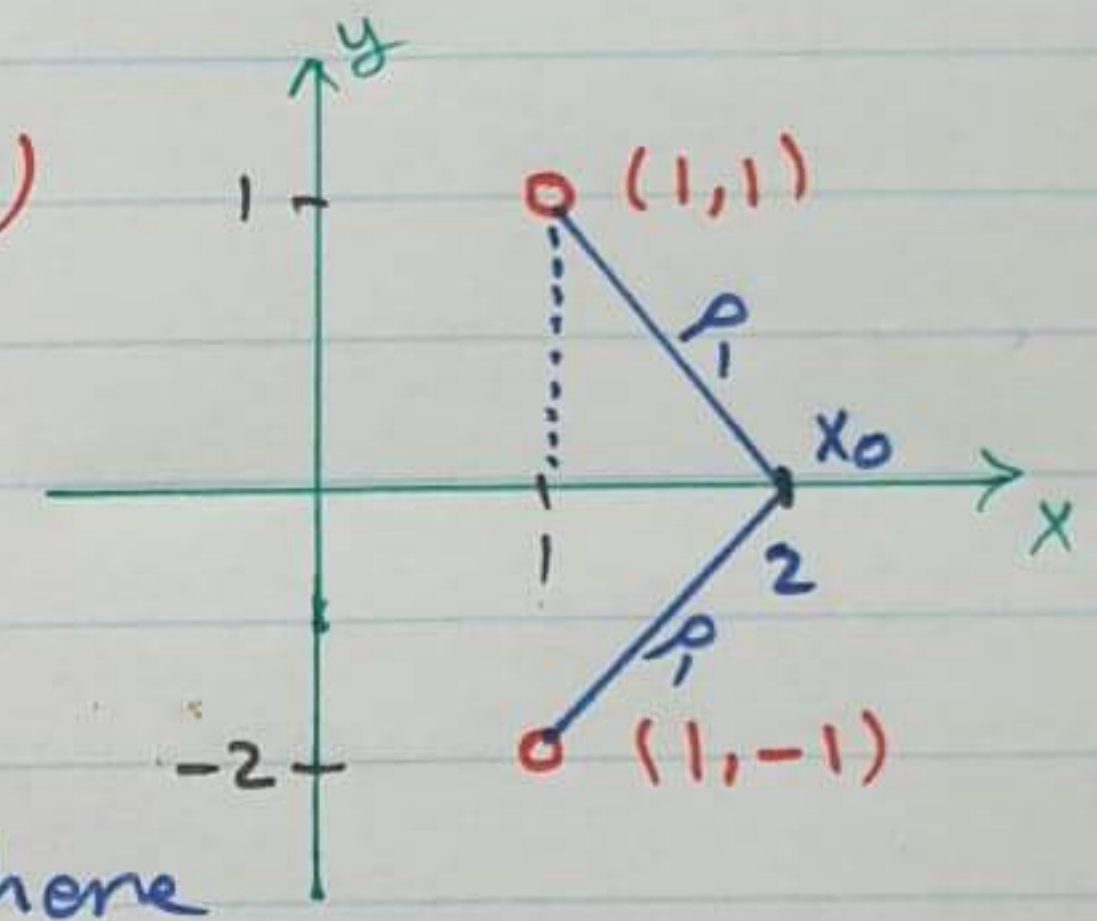 y
)
1
(1,1)
ρ1
x0
x
1
2
ρ1
-2
(1,-1)
here